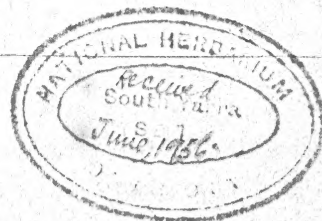 NATIONAL HERBARIUM
Received
South Yarra
S.E.1
June, 1956